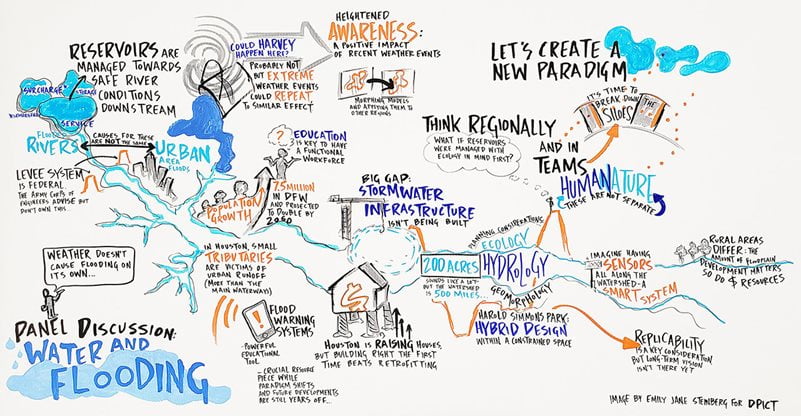 RESERVOIRS ARE
MANAGED TOWARDS
SAFE RIVER
CONDITIONS
DOWNSTREAM
SURCHARGE
STORAGE
SERVICE
FLOOD
RIVERS
CAUSES FOR THESE
ARE NOT THE SAME
URBAN
AREA
FLOODS
LEVEE SYSTEM
IS FEDERAL.
THE ARMY CORPS OF
ENGINEERS ADVISE BUT
DON'T OWN THIS...
COULD HARVEY
HAPPEN HERE?
PROBABLY NOT
BUT EXTREME
WEATHER EVENTS
COULD REPEAT
TO SIMILAR EFFECT
HEIGHTENED
AWARENESS:
A POSITIVE IMPACT
OF RECENT WEATHER EVENTS
MORPHING MODELS
AND APPLYING THEM TO
OTHER REGIONS
?
EDUCATION
IS KEY TO HAVE
A FUNCTIONAL
WORKFORCE
POPULATION
GROWTH
7.5 MILLION
IN DFW
AND PROJECTED
TO DOUBLE BY
2050
LET'S CREATE A
NEW PARADIGM
IT'S TIME TO
BREAK DOWN
THE
SILOES
THINK REGIONALLY
AND IN
TEAMS
WHAT IF RESERVOIRS
WERE MANAGED WITH
ECOLOGY IN MIND FIRST?
HUMANATURE
THESE ARE NOT SEPARATE
BIG GAP:
STORMWATER
INFRASTRUCTURE
ISN'T BEING BUILT
PLANNING CONSIDERATIONS
ECOLOGY
HYDROLOGY
GEOMORPHOLOGY
200 ACRES
SOUNDS LIKE A LOT—
BUT THE WATERSHED IS
500 MILES...
IMAGINE HAVING
SENSORS
ALL ALONG THE
WATERSHED-A
SMART SYSTEM
RURAL AREAS
DIFFER: THE
AMOUNT OF FLOODPLAIN
DEVELOPMENT MATTERS
SO DO $ RESOURCES
WEATHER DOESN'T
CAUSE FLOODING ON
ITS OWN...
IN HOUSTON, SMALL
TRIBUTARIES
ARE VICTIMS OF
URBAN RUNOFF
(MORE THAN THE
MAIN WATERWAYS)
FLOOD
WARNING
SYSTEMS
-POWERFUL
EDUCATIONAL
TOOL
- CRUCIAL RESOURCE
PIECE WHILE
PARADIGM SHIFTS
AND FUTURE DEVELOPMENTS
ARE STILL YEARS OFF...
HOUSTON IS RAISING HOUSES,
BUT BUILDING RIGHT THE FIRST
TIME BEATS RETROFITTING
HAROLD SIMMONS PARK:
HYBRID DESIGN
WITHIN A CONSTRAINED SPACE
REPLICABILITY
IS A KEY CONSIDERATION
BUT LONG-TERM VISION
ISN'T THERE YET
PANEL DISCUSSION:
WATER AND
FLOODING
IMAGE BY EMILY JANE STEINBERG FOR DPICT